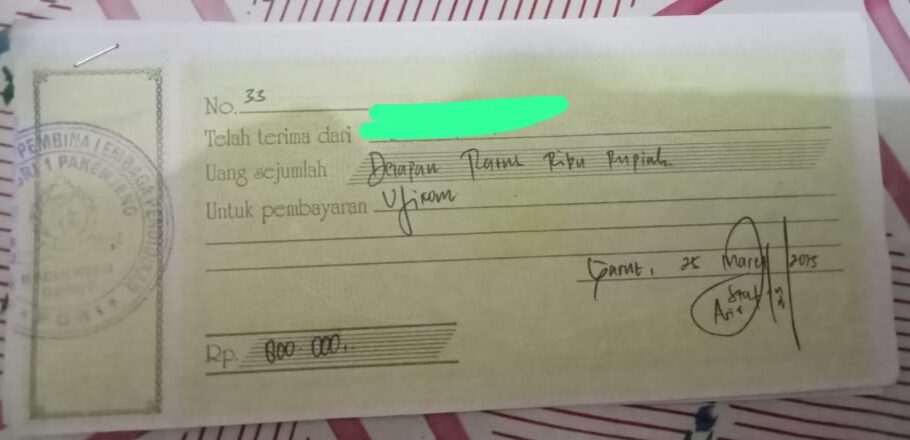 PEMBINA LEMBAGA PENDIDIKAN
PGRI
No. 33
Telah terima dari
Uang sejumlah Delapan Ratus Ribu Rupiah
Untuk pembayaran Ujikom
Garut, 25 Maret 2025
Rp. 800.000,.